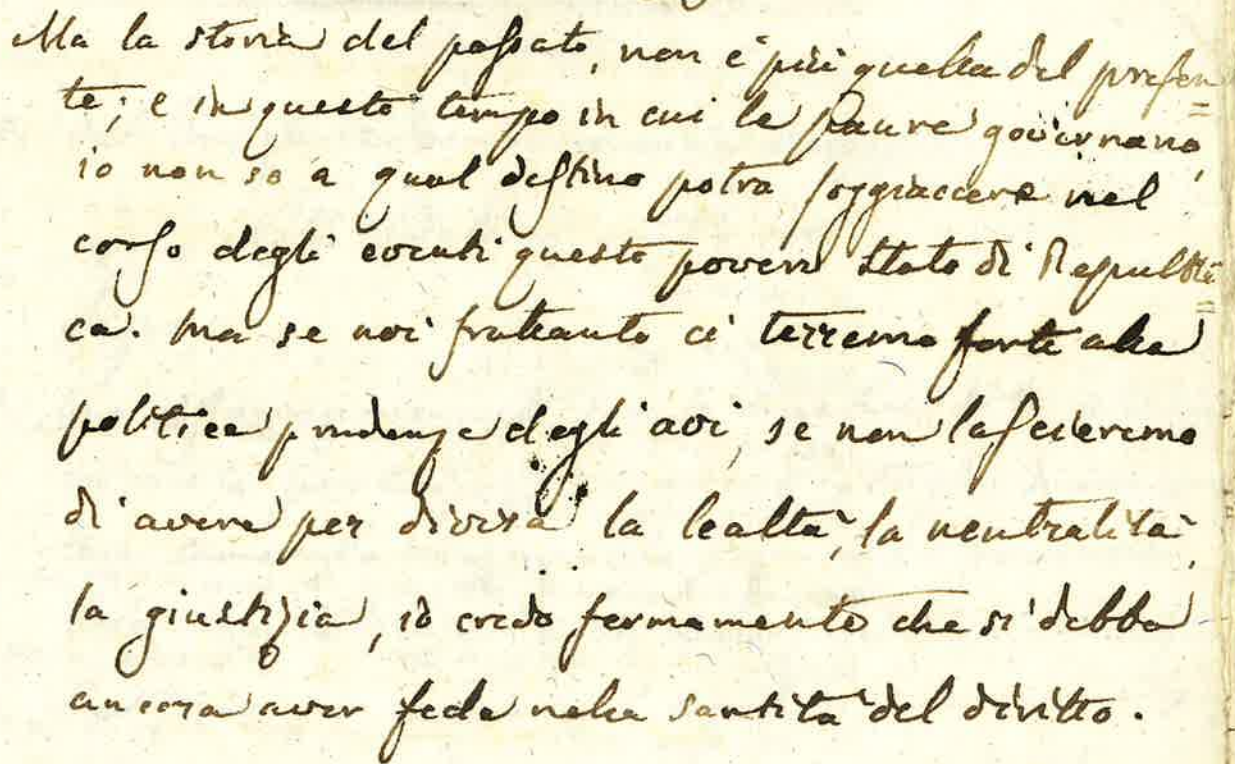 Ma la storia del passato, non è più quella del presen=
te; e in questo tempo in cui le paure governano,
io non so a qual destino potrà soggiaccere nel
corso degli eventi questo povero Stato di Republi=
ca. Ma se noi frattanto ci terremo forte alla
politica prudenza degli avi, se non lascieremo
di avere per divisa la lealtà, la neutralità,
la giustizia, io credo fermamente che si debba
ancora aver fede nella santità del diritto.